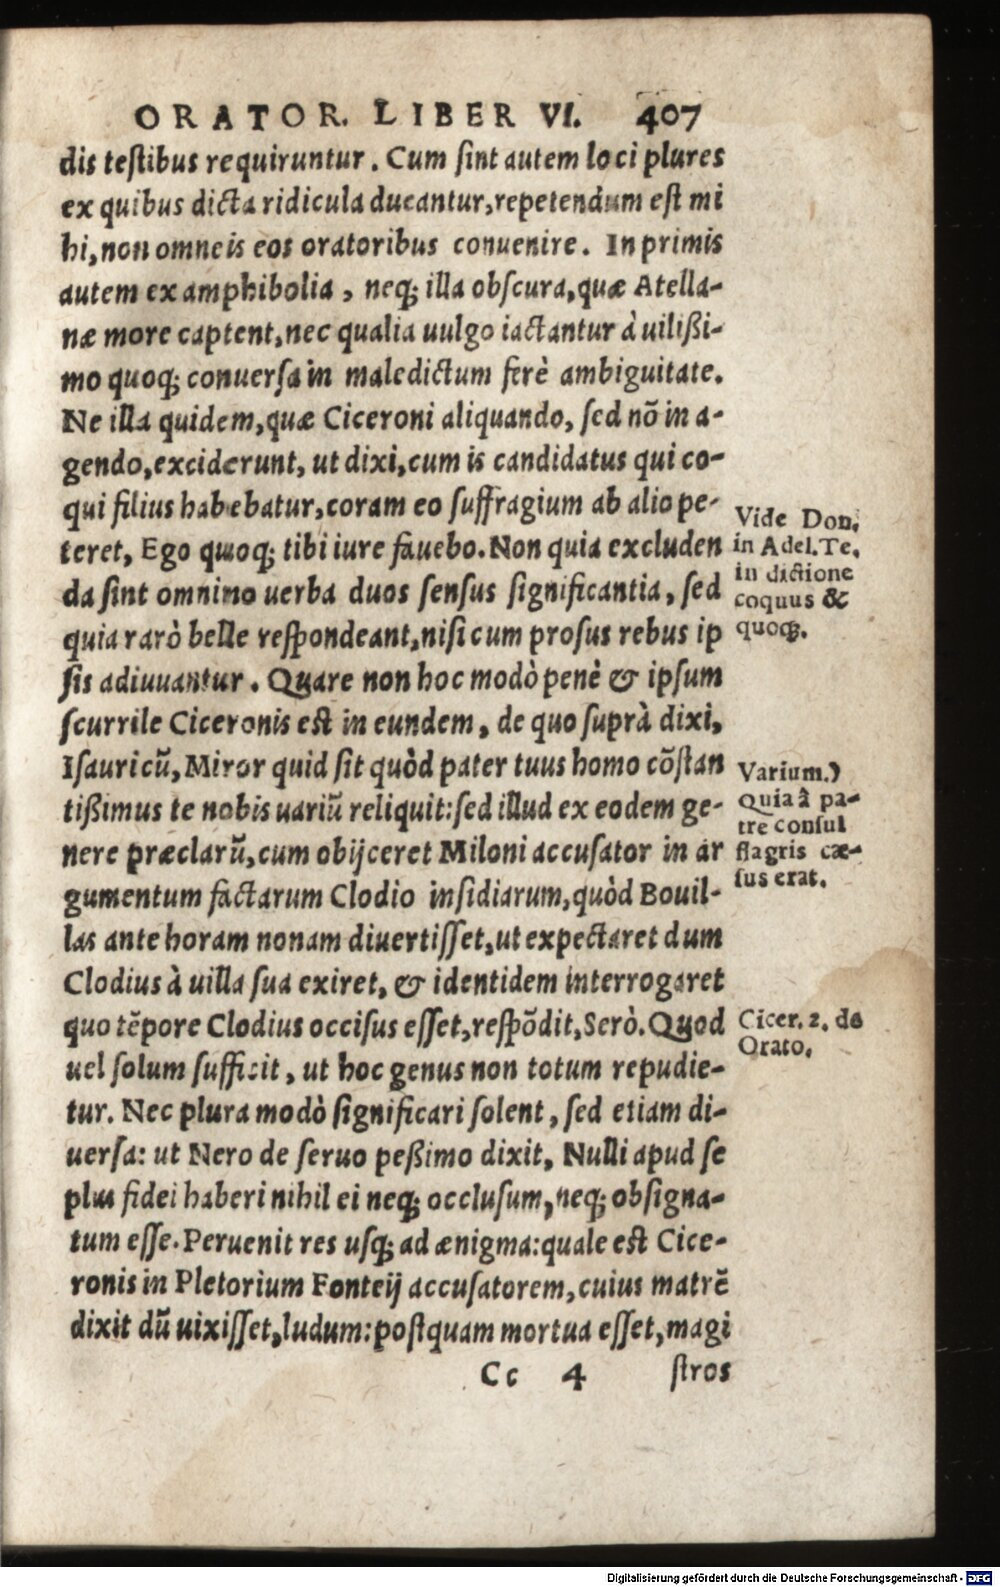 ORATOR. LIBER VI. 407
dis testibus requiruntur. Cum sint autem loci plures
ex quibus dicta ridicula ducantur, repetendum est mi
hi, non omneis eos oratoribus conuenire. In primis
autem ex amphibolia, neq; illa obscura, quæ Atella-
næ more captent, nec qualia uulgo iactantur à uilißi-
mo quoq; conuersa in maledictum ferè ambiguitate.
Ne illa quidem, quæ Ciceroni aliquando, sed nō in a-
gendo, exciderunt, ut dixi, cum is candidatus qui co-
qui filius habebatur, coram eo suffragium ab alio pe-
teret, Ego quoq; tibi iure fauebo. Non quia excluden
da sint omnino uerba duos sensus significantia, sed
quia rarò belle respondeant, nisi cum prosus rebus ip
sis adiuuantur. Quare non hoc modò penè & ipsum
scurrile Ciceronis est in eundem, de quo suprà dixi,
Isauricū, Miror quid sit quòd pater tuus homo cōstan
tißimus te nobis uariū reliquit: sed illud ex eodem ge-
nere præclarū, cum obijceret Miloni accusator in ar
gumentum factarum Clodio insidiarum, quòd Bouil-
las ante horam nonam diuertisset, ut expectaret dum
Clodius à uilla sua exiret, & identidem interrogaret
quo tēpore Clodius occisus esset, respōdit, Serò. Quod
uel solum sufficit, ut hoc genus non totum repudie-
tur. Nec plura modò significari solent, sed etiam di-
uersa: ut Nero de seruo peßimo dixit, Nulli apud se
plus fidei haberi nihil ei neq; occlusum, neq; obsigna-
tum esse. Peruenit res usq; ad ænigma: quale est Cice-
ronis in Pletorium Fonteij accusatorem, cuius matrē
dixit dū uixisset, ludum: postquam mortua esset, magi
Cc 4 stros
Vide Don.
in Adel. Te.
in dictione
coquus &
quoq;.
Varium.)
Quia à pa-
tre consul
flagris cæ-
sus erat.
Cicer. 2. de
Orato.
Digitalisierung gefördert durch die Deutsche Forschungsgemeinschaft - DFG